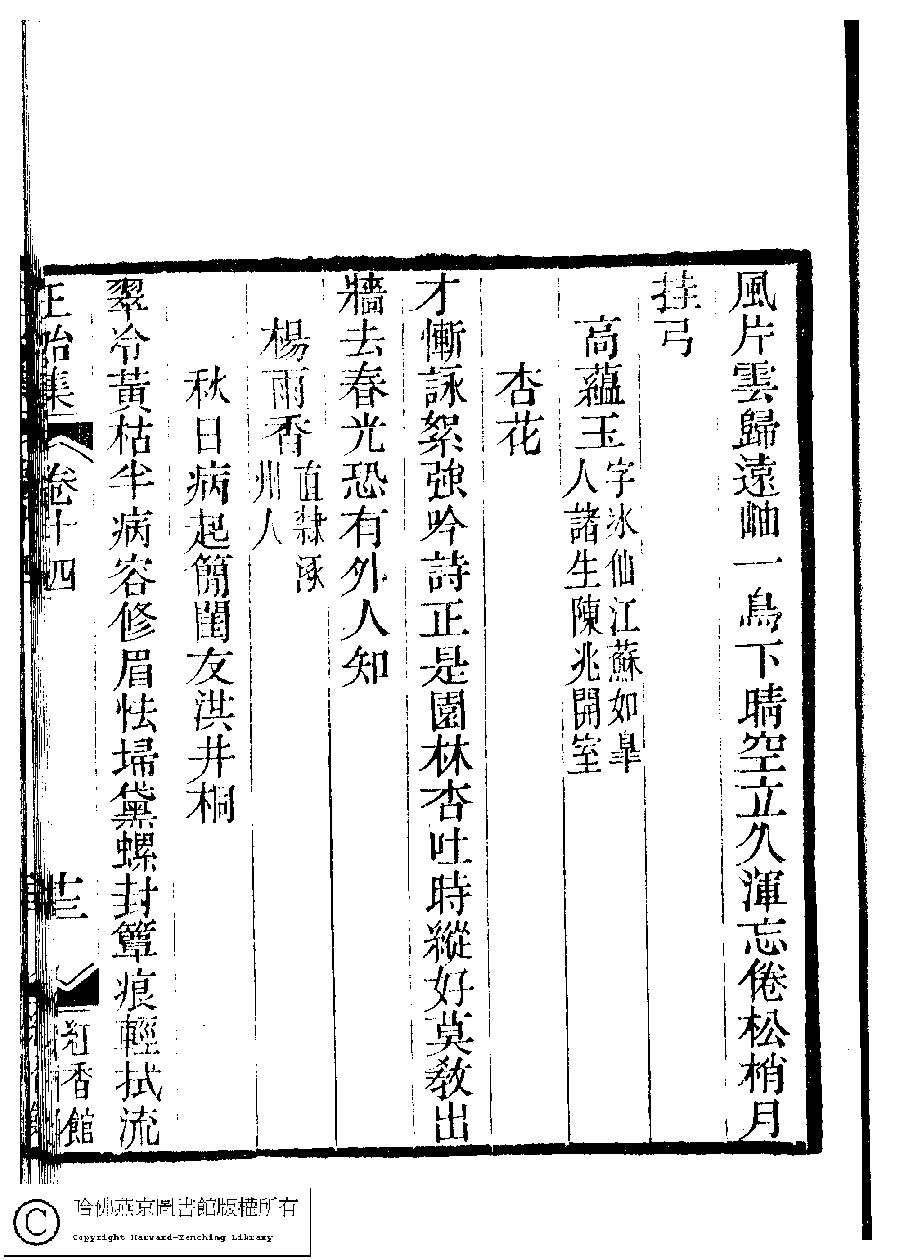 風片雲歸遠岫一鳥下晴空立久渾忘倦松梢月
挂弓
高蘊玉字冰仙江蘇如臯
人諸生陳兆開室
杏花
才慚詠絮強吟詩正是園林杏吐時縱好莫敎出
牆去春光恐有外人知
楊雨香直隸涿
州人
秋日病起簡閨友洪井桐
翠冷黃枯半病容修眉怯埽黛螺封簟痕輕拭流
正始集
卷十四
十三
紅香館
哈佛燕京圖書館版權所有
Copyright Harvard-Yenching Library